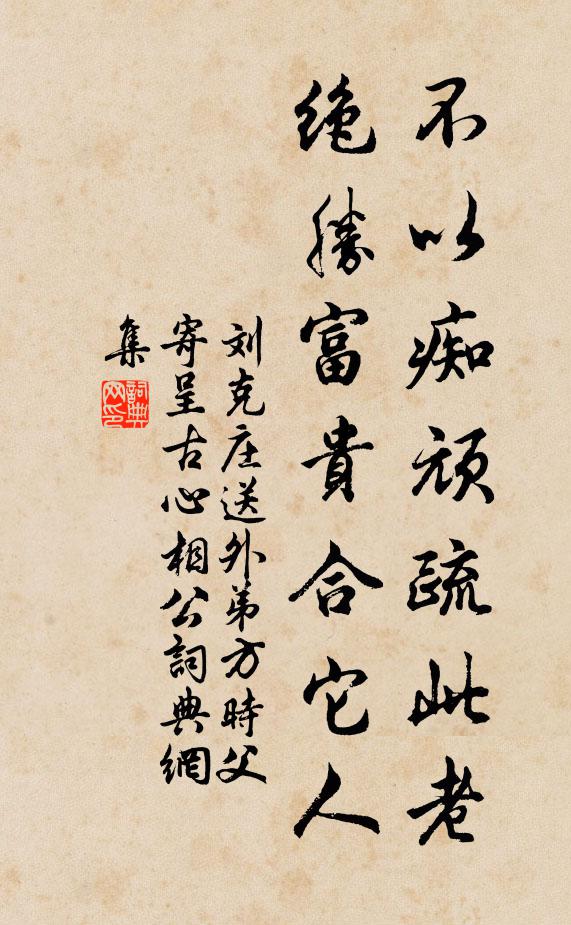 不以痴頑疏此老
绝勝富貴合它人
刘克庄送外弟方時父
寄呈古心相公詞典網
集
詞典网印